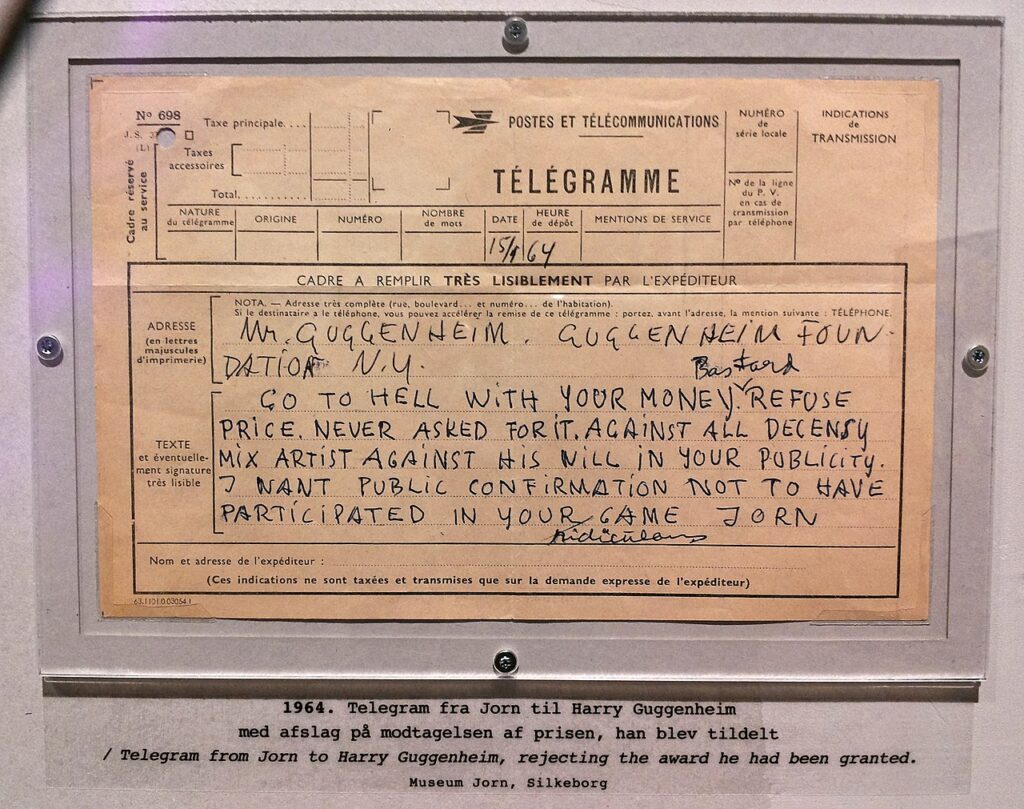 Nº 698
J. S.
(L)
Cadre réservé
au service
Taxe principale. . . .
Taxes
accessoires
Total. . . . . . . . . . . .
POSTES ET TÉLÉCOMMUNICATIONS
TÉLÉGRAMME
NUMÉRO
de
série locale
Nº de la ligne
du P. V.
en cas de
transmission
par téléphone
INDICATIONS
de
TRANSMISSION
NATURE
du télégramme
ORIGINE
NUMÉRO
NOMBRE
de mots
DATE
HEURE
de dépôt
MENTIONS DE SERVICE
15/1 64
CADRE A REMPLIR TRÈS LISIBLEMENT PAR L'EXPÉDITEUR
ADRESSE
(en lettres
majuscules
d'imprimerie)
NOTA. — Adresse très complète (rue, boulevard... et numéro... de l'habitation).
Si le destinataire a le téléphone, vous pouvez accélérer la remise de ce télégramme : portez, avant l'adresse, la mention suivante : TÉLÉPHONE.
Mr. GUGGENHEIM. GUGGENHEIM FOUN-
DATION N.Y.
Bastard
TEXTE
et éventuelle-
ment signature
très lisible
GO TO HELL WITH YOUR MONEY. REFUSE
PRICE. NEVER ASKED FOR IT. AGAINST ALL DECENSY
MIX ARTIST AGAINST HIS WILL IN YOUR PUBLICITY.
I WANT PUBLIC CONFIRMATION NOT TO HAVE
PARTICIPATED IN YOUR GAME JORN
ridiculous
Nom et adresse de l'expéditeur :
(Ces indications ne sont taxées et transmises que sur la demande expresse de l'expéditeur)
63.1101.0.03054.1
1964. Telegram fra Jorn til Harry Guggenheim
med afslag på modtagelsen af prisen, han blev tildelt
/ Telegram from Jorn to Harry Guggenheim, rejecting the award he had been granted.
Museum Jorn, Silkeborg